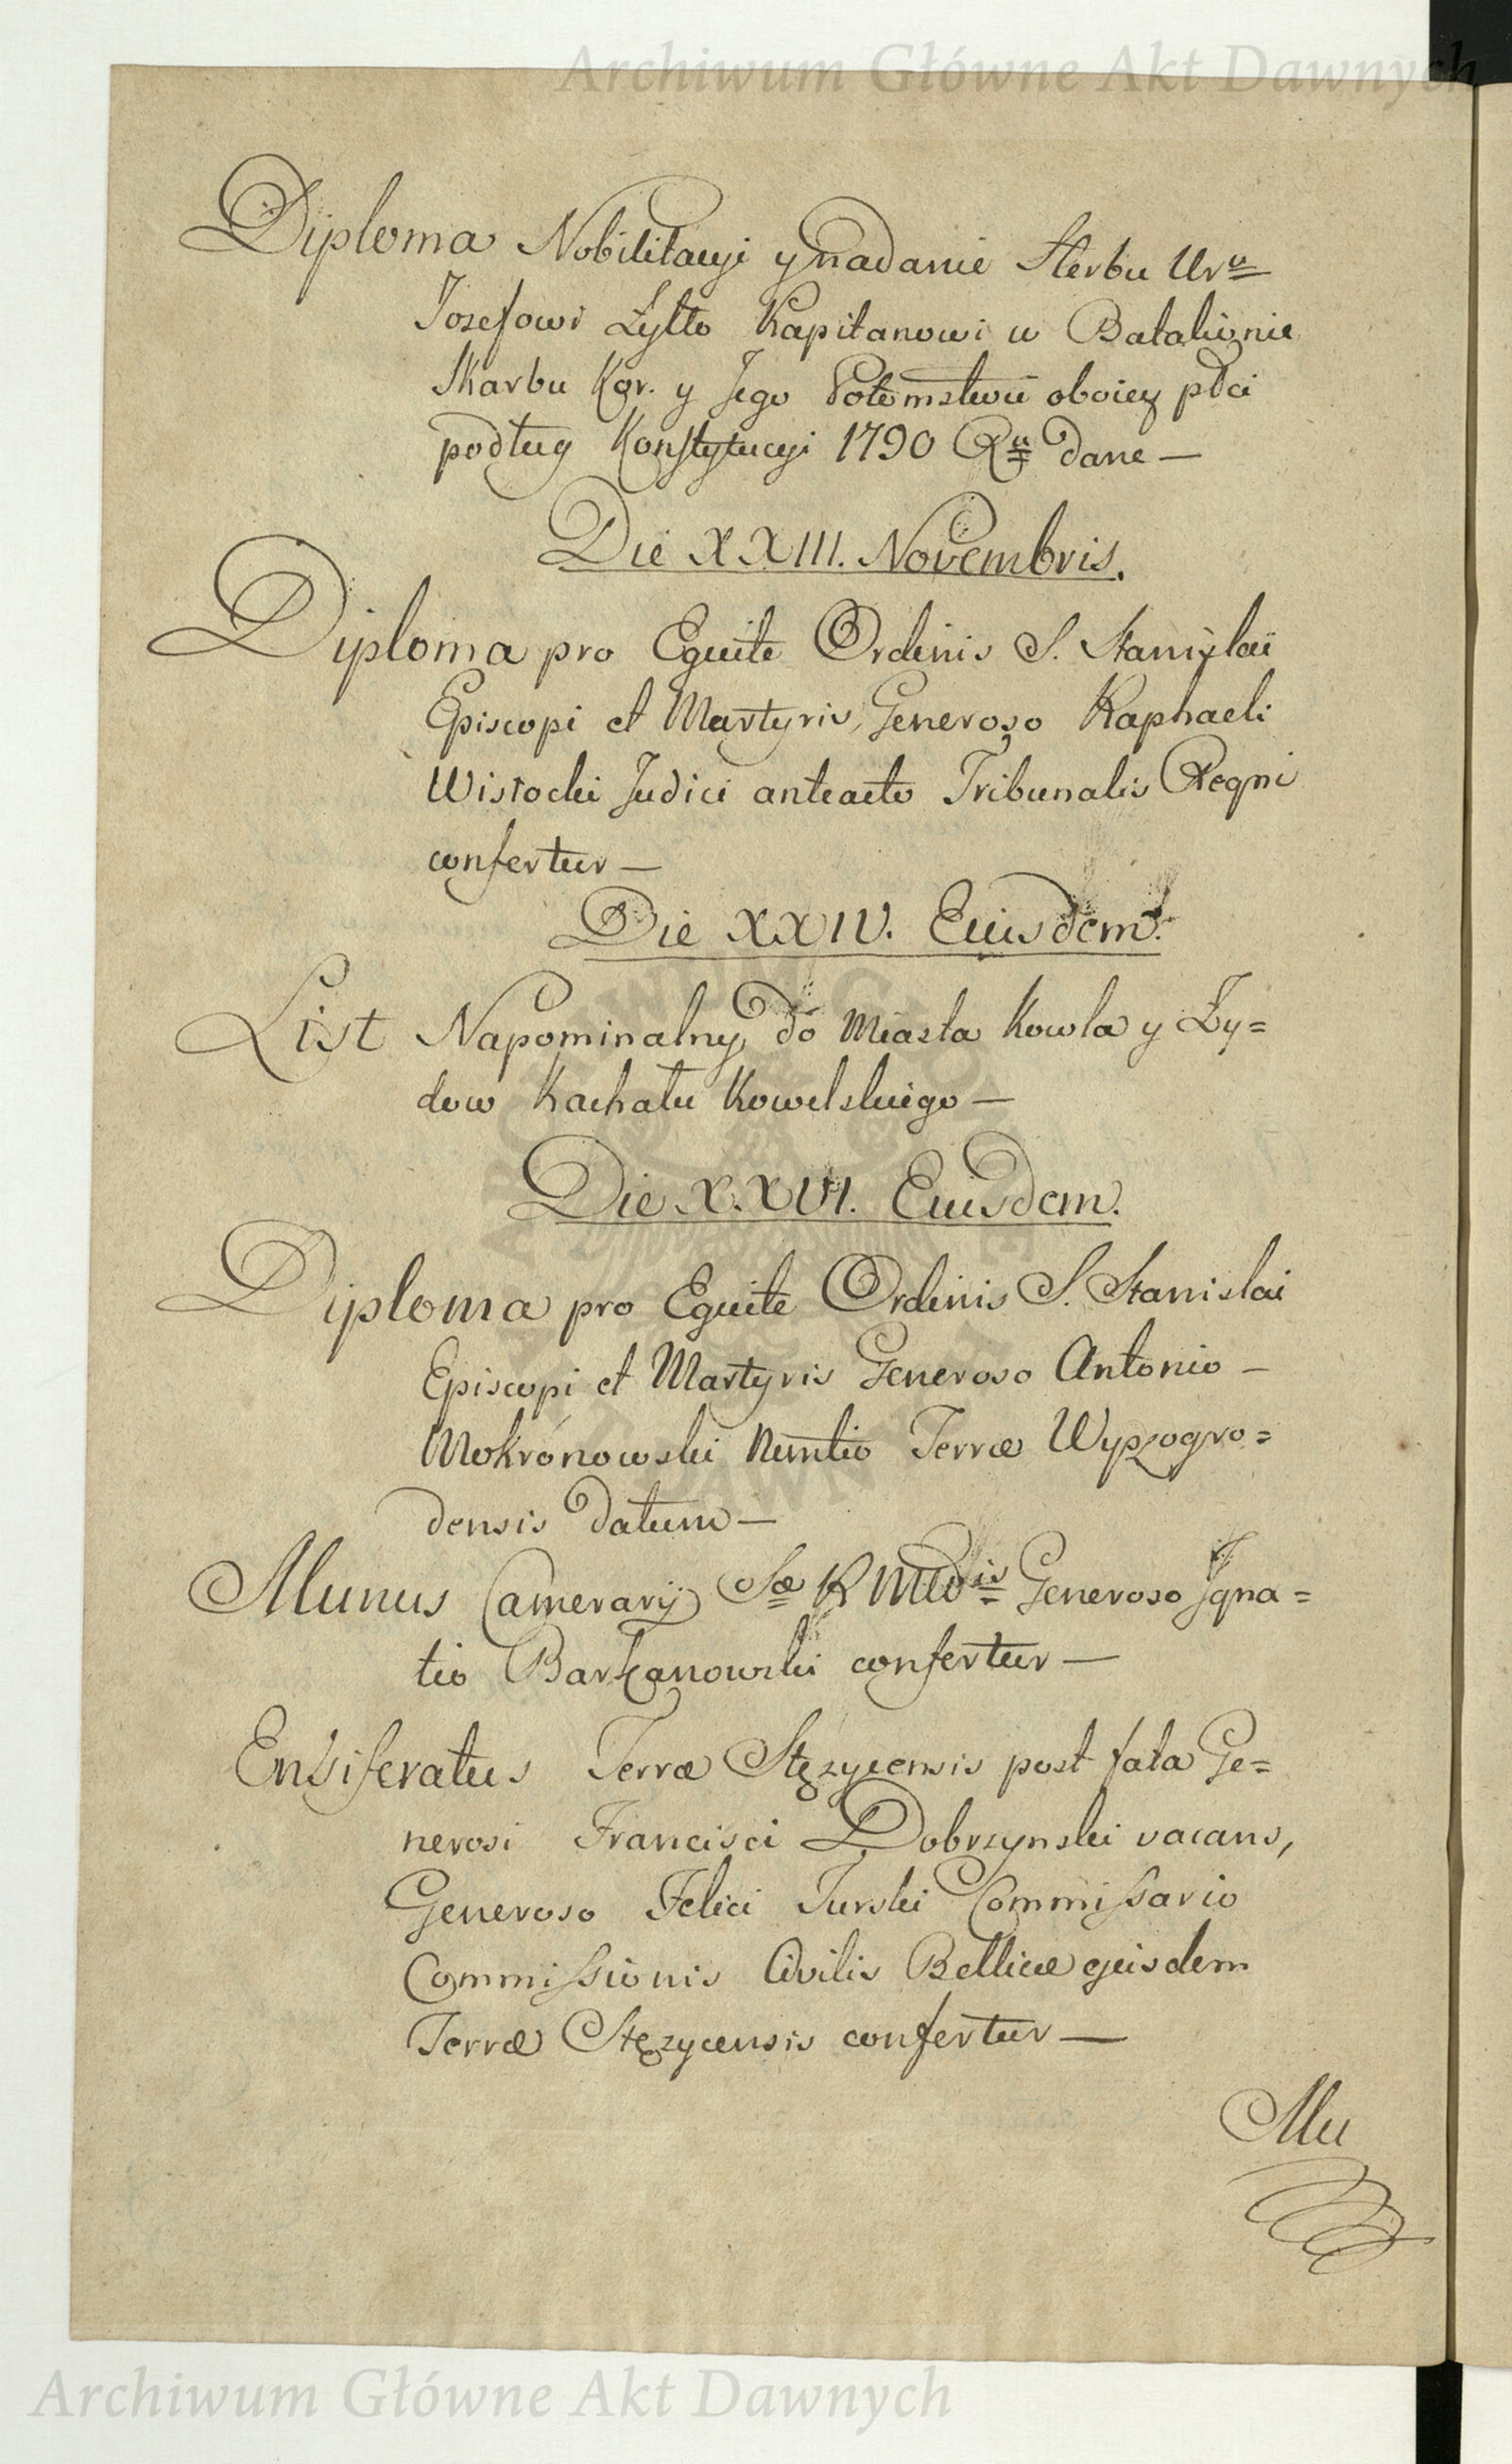 Archiwum Główne Akt Dawnych
Diploma Nobilitacyi y nadanie Herbu Uru
Jozefowi Zytto Kapitanowi w Batalionie
Skarbu Kor. y Jego Potomstwu oboiey płci
podług Konstytucyi 1790 Ru dane —
Die XXIII. Novembris.
Diploma pro Equite Ordinis S. Stanislai
Episcopi et Martyris, Generoso Raphaeli
Wisłocki Judici anteacto Tribunalis Regni
confertur —
Die XXIV. Eiusdem.
List Napominalny do Miasta Kowla y Ży=
dow Kachału Kowelskiego —
Die X.XVI. Eiusdem.
Diploma pro Equite Ordinis S. Stanislai
Episcopi et Martyris Generoso Antonio —
Mokronowski Nuntio Terræ Wyszogro=
densis datum —
Munus Camerarij Sæ R Mttis Generoso Igna=
tio Barszanowski confertur —
Ensiferatus Terræ Stęzycensis post fata Ge=
nerosi Francisci Dobrzynski vacans,
Generoso Felici Turski Commissario
Commissionis Civilis Bellicæ ejusdem
Terræ Stęzycensis confertur —
Mu
Archiwum Główne Akt Dawnych